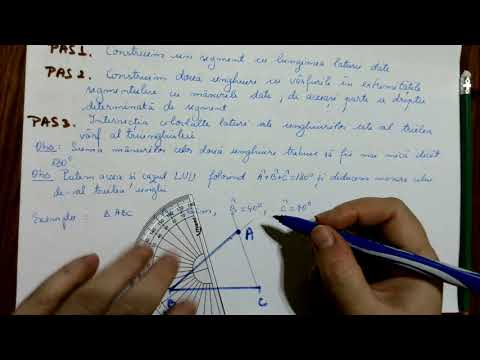 PAS 1. Construim un segment cu lungimea laturii date
PAS 2. Construim două unghiuri cu vârfurile în extremitățile
segmentului cu măsurile date, de aceeași parte a dreptei
determinată de segment
PAS 3. Intersecția celorlalte laturi ale unghiurilor este al treilea
vârf al triunghiului
Obs: Suma măsurilor celor două unghiuri trebuie să fie mai mică decât
180°
Obs: Putem avea și cazul LUU folosind Â+B̂+Ĉ=180° și deducem măsura celui
de-al treilea unghi
Exemplu: Δ ABC B̂=40°, Ĉ=70°
A
B
C